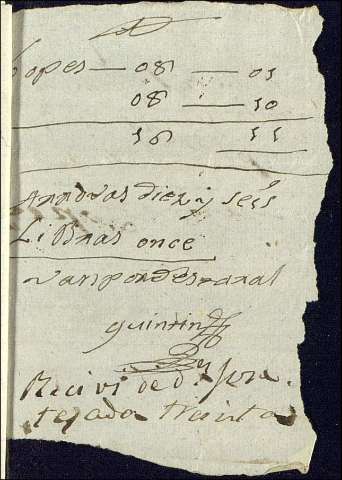 lopes — 08 — 01
08 — 10
16 11
Arrovas diez y seis
LiBras once
van por
quintin
Recivi de dn Jose
tejada treinta